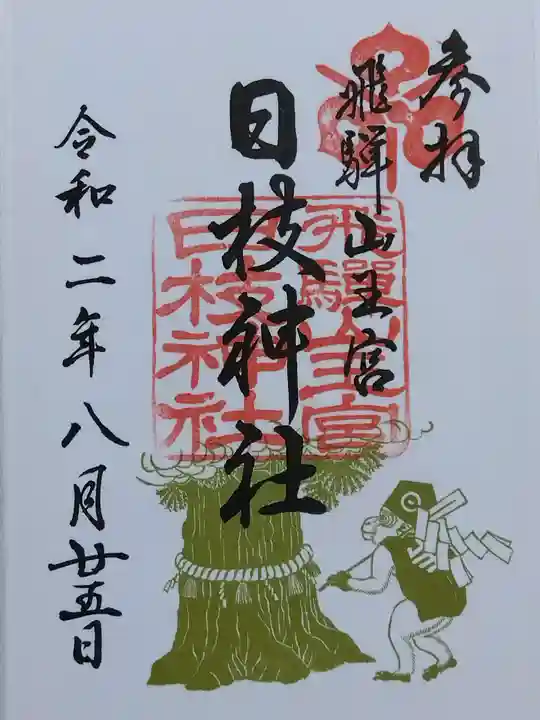 参拝
飛騨山王宮
日枝神社
令和二年八月廿五日
飛驒山王宮
日枝神社